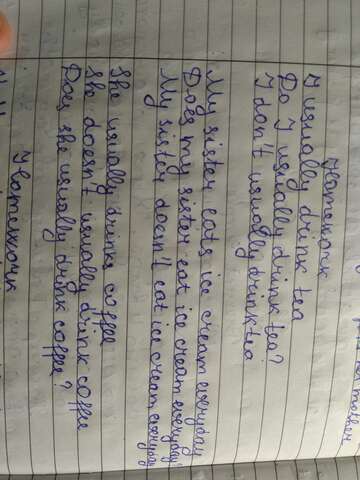 Homework
I usually drink tea
Do I usually drink tea?
I don't usually drink tea
My sister eats ice cream everyday
Does my sister eat ice cream everyday?
My sister doesn't eat ice cream everyday
She usually drinks coffee
She doesn't usually drink coffee
Does she usually drink coffee?
Homework